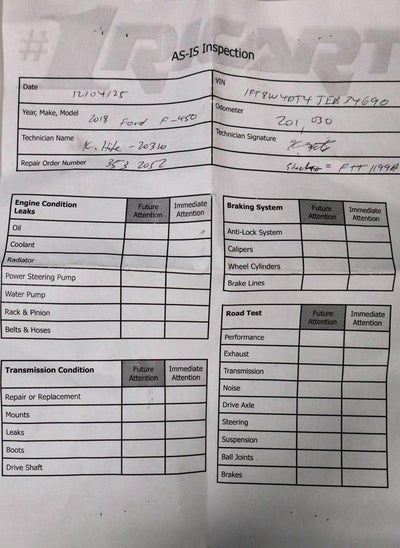 #1 RICART
AS-IS Inspection
Date 12/04/25
VIN 1FT8W4DT4JEB34690
Year, Make, Model 2018 Ford F-450
Odometer 201,030
Technician Name K. Hite - 20310
Technician Signature
Repair Order Number 353 2052
Stock# = PTT 1199A
Engine Condition Future Attention Immediate Attention
Leaks
Oil
Coolant
Radiator
Power Steering Pump
Water Pump
Rack & Pinion
Belts & Hoses
Braking System Future Attention Immediate Attention
Anti-Lock System
Calipers
Wheel Cylinders
Brake Lines
Transmission Condition Future Attention Immediate Attention
Repair or Replacement
Mounts
Leaks
Boots
Drive Shaft
Road Test Future Attention Immediate Attention
Performance
Exhaust
Transmission
Noise
Drive Axle
Steering
Suspension
Ball Joints
Brakes